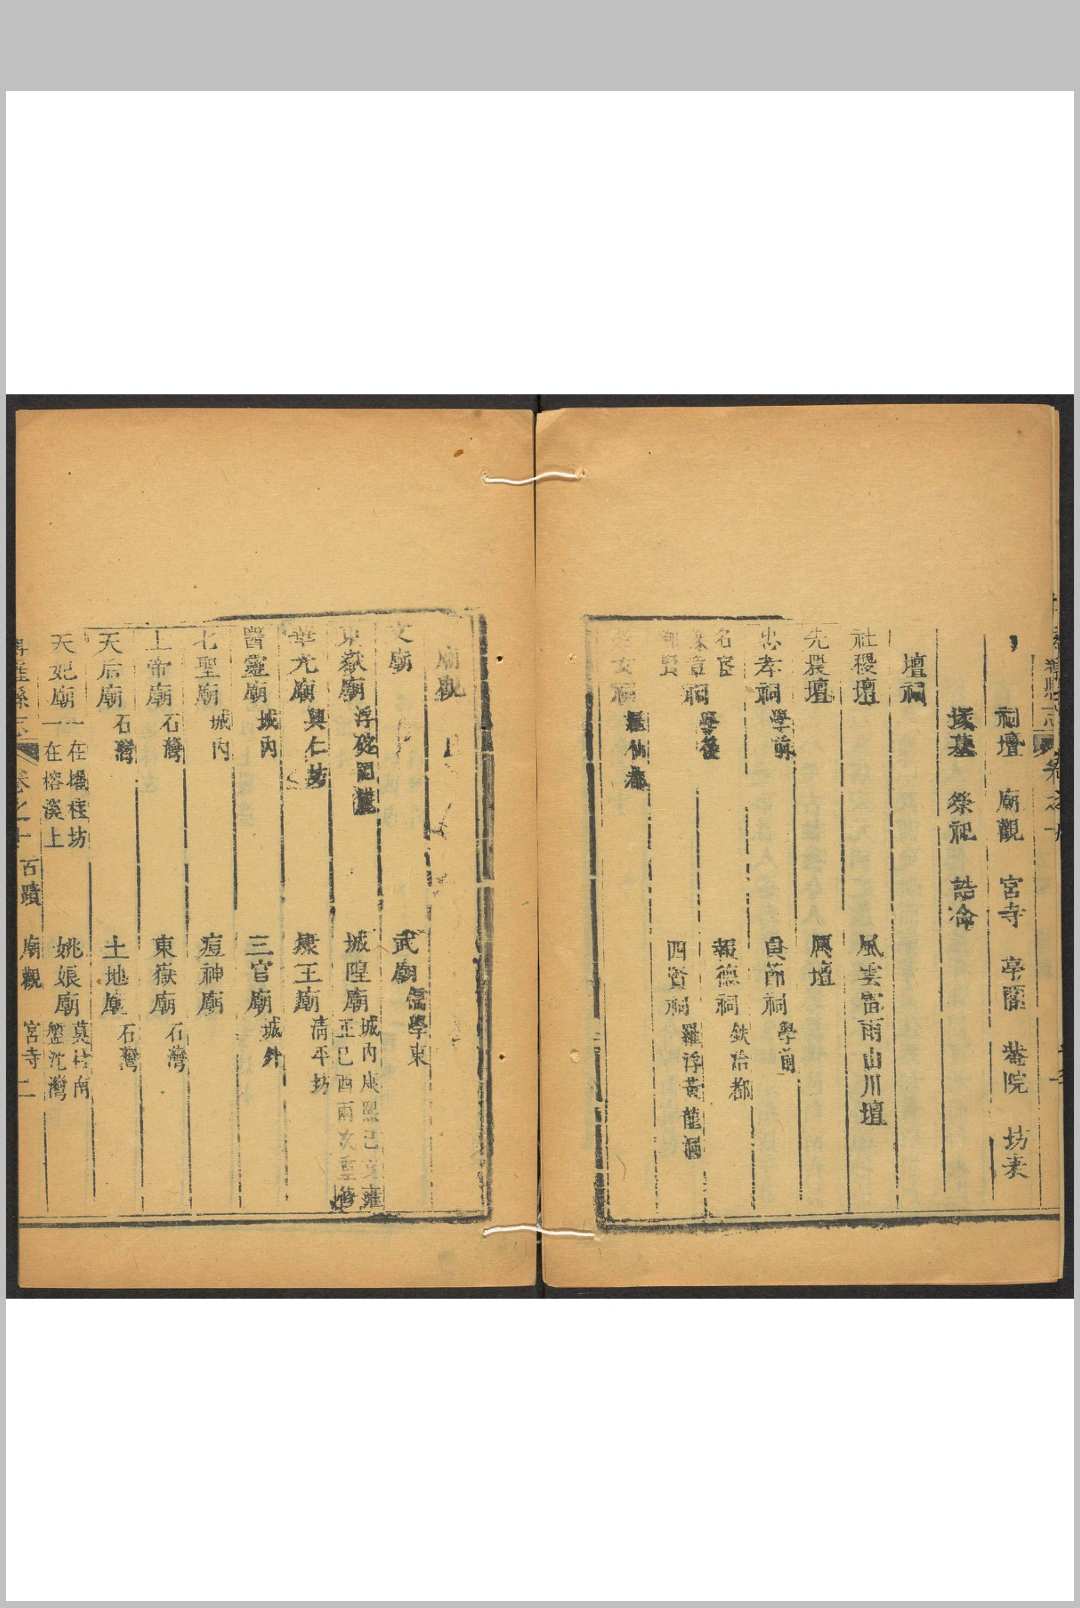 祠壇 廟觀 宮寺 亭閣 菴院 坊表
塚墓 榮祀 誥命
壇祠
社稷壇 風雲雷雨山川壇
先農壇 厲壇
忠孝祠 學前 貞節祠 學前
名宦 祠 學後 報德祠 鉄冶都
鄉賢 四賢祠 羅浮黃龍洞
女祠
廟觀
文廟 武廟 儒學東
東嶽廟 城隍廟 城內康熙己亥雍
正己酉兩次重修
華光廟 興仁坊 康王廟 清平坊
醫靈廟 城內 三官廟 城外
七聖廟 城內 痘神廟
上帝廟 石灣 東嶽廟 石灣
天后廟 石灣 土地廟 石灣
天妃廟 一在 桂坊
一在榕溪上 姚娘廟 莫村南
盤沱灣
縣志 卷之十 古蹟 廟觀 宮寺 二